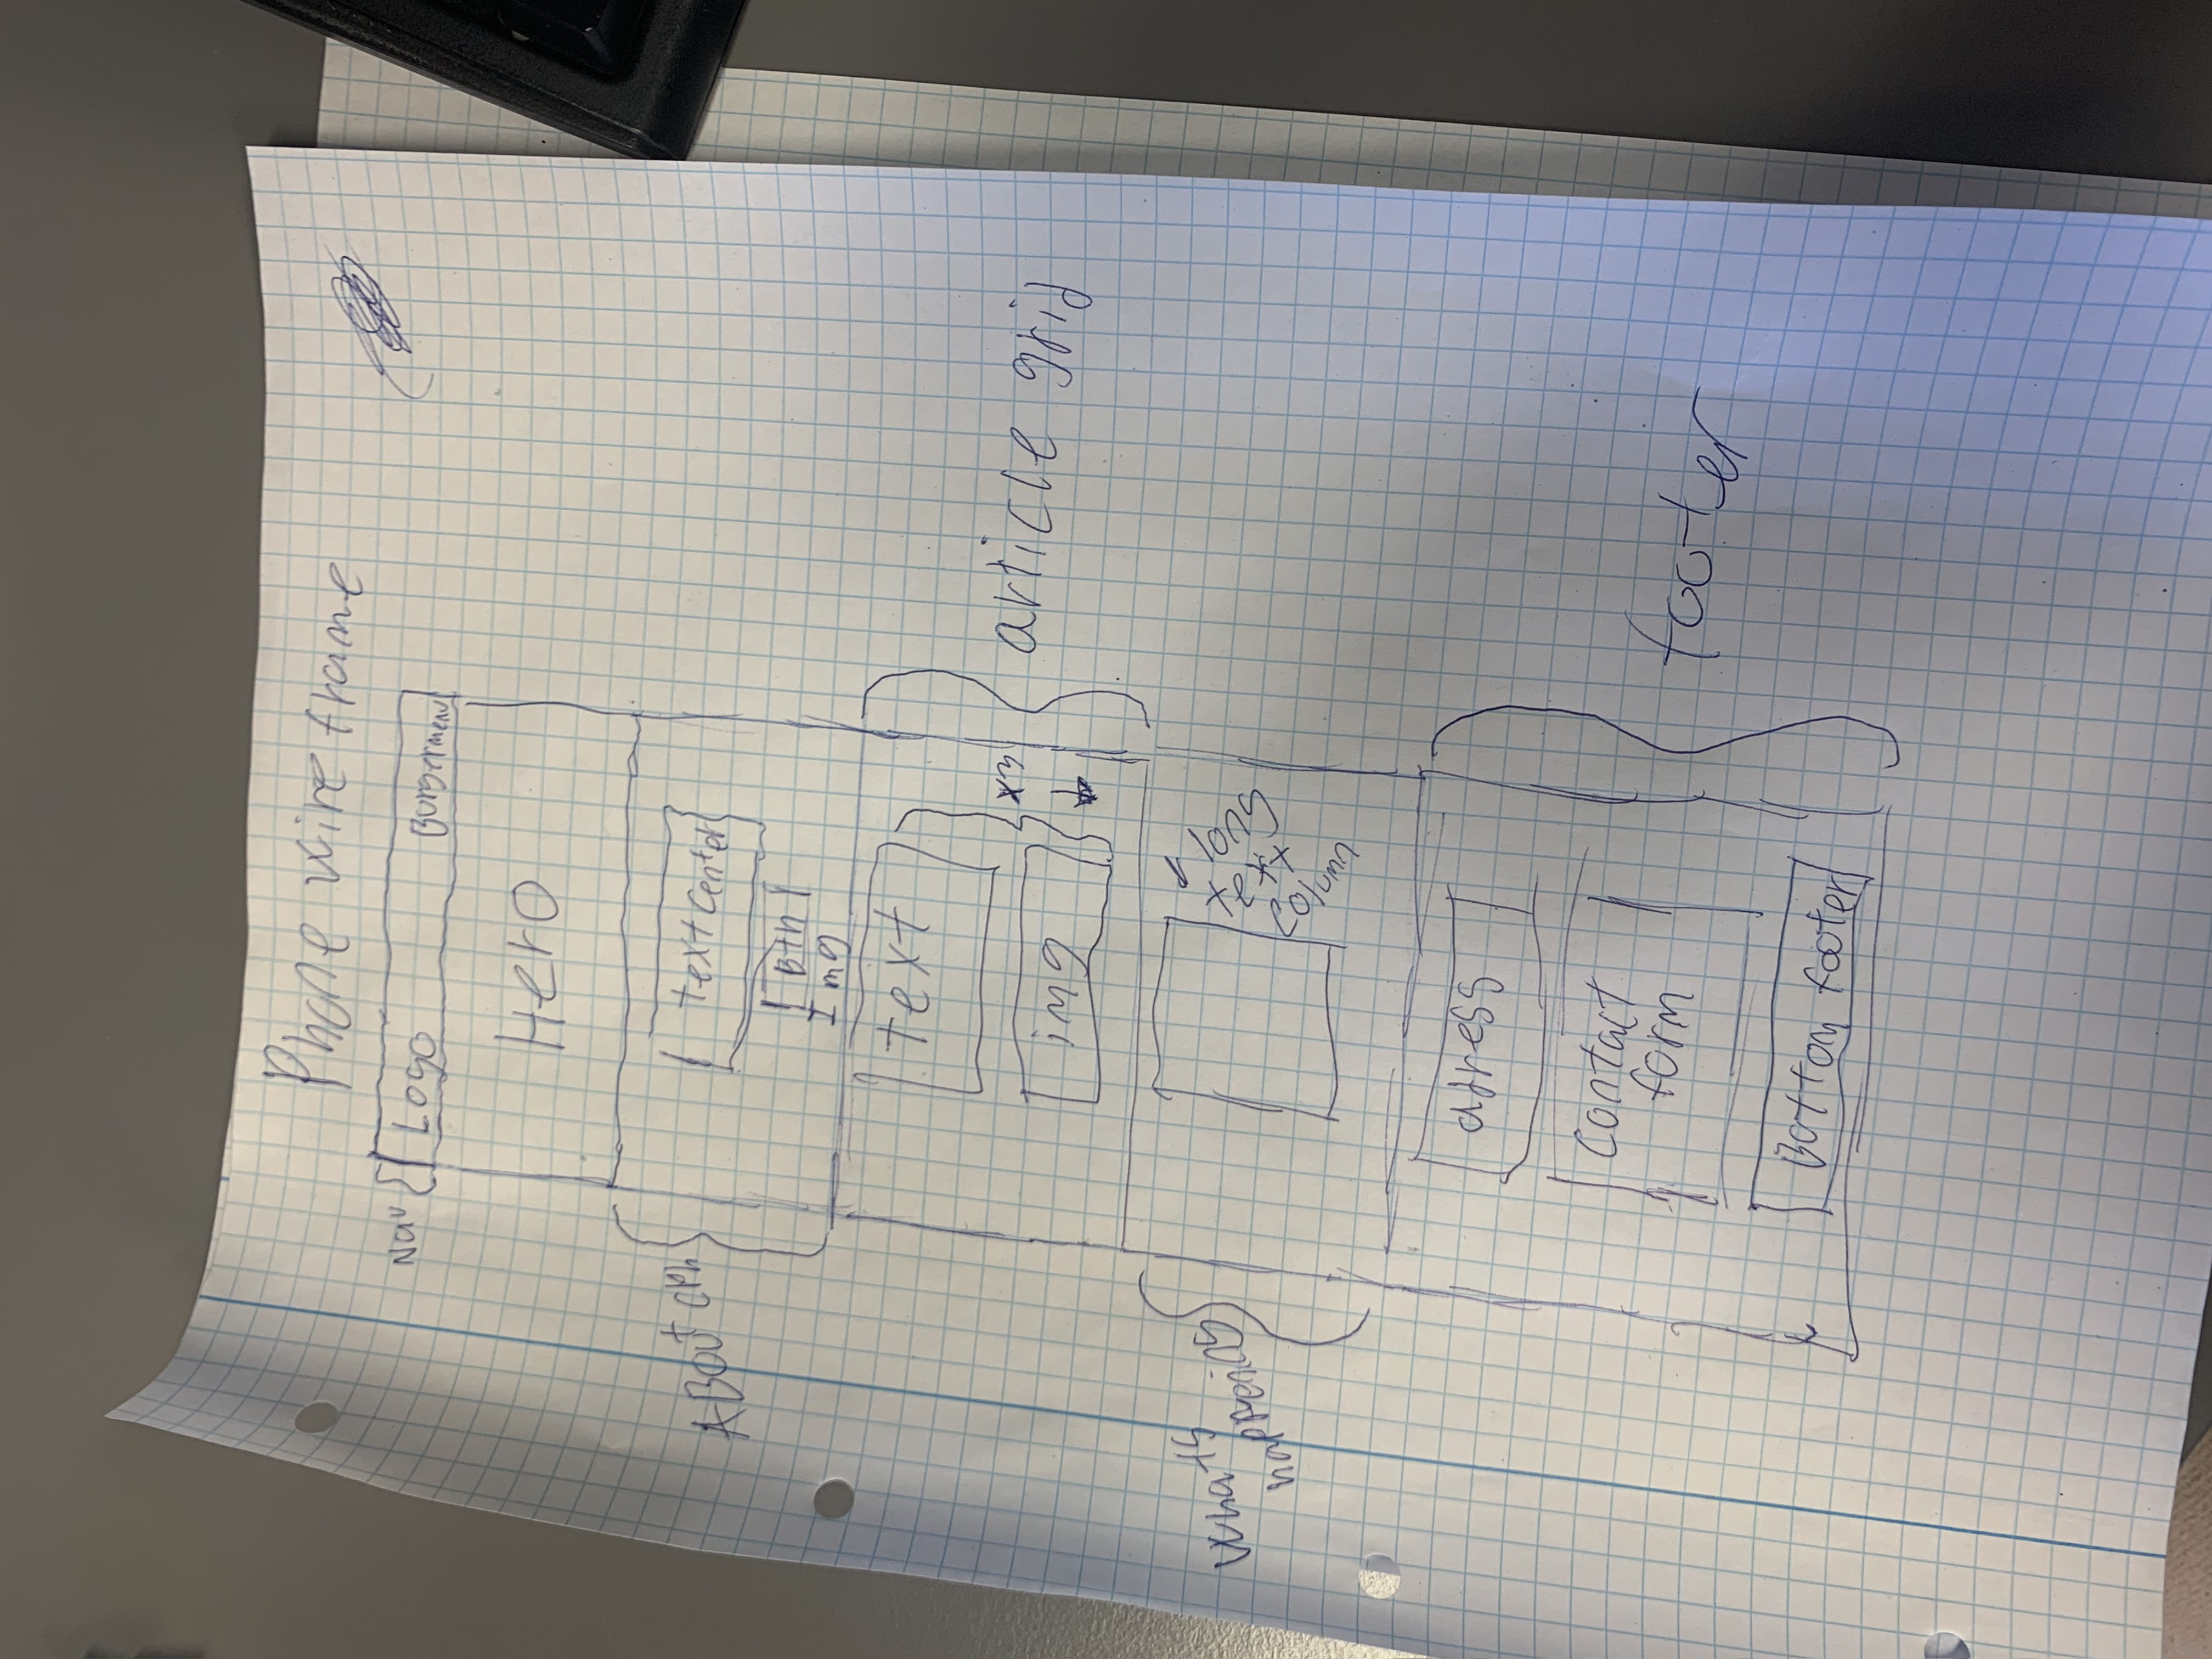 Phone wire frame
Nav
Logo
Burgermenu
Hero
ABout cph
text center
Btn
Img
text
img
x3
article grid
Whats
happening
long
text
Column
adress
Contact
form
footer
Bottom footer